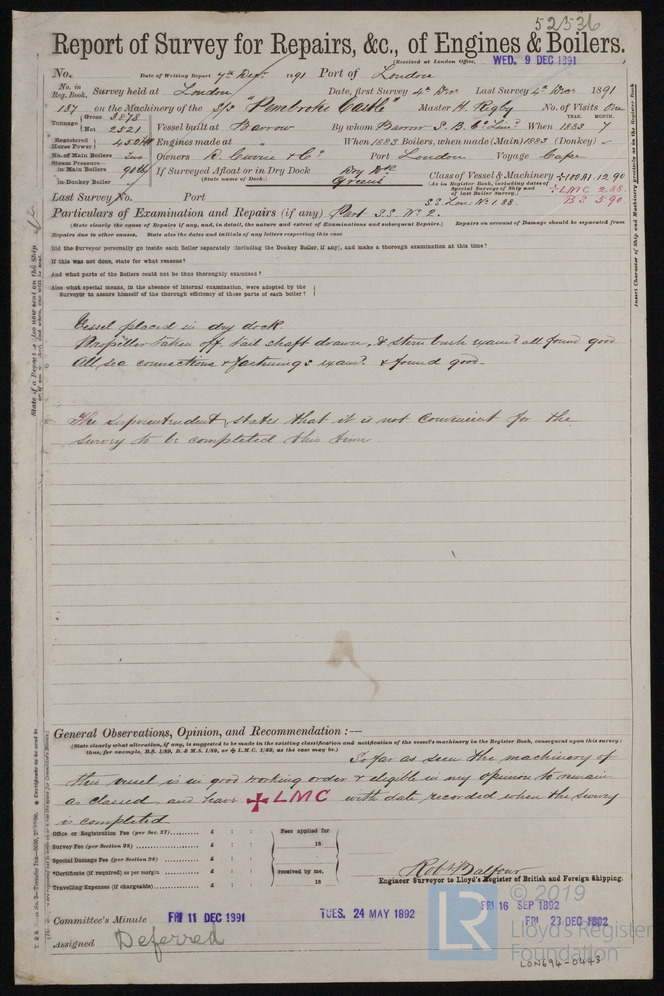 52536
Report of Survey for Repairs, &c., of Engines & Boilers.
(Received at London Office, WED. 9 DEC 1891
No. Date of Writing Report 7th Decr 1891 Port of London
No. in Reg. Book. Survey held at London Date, first Survey 4th Decr Last Survey 4th Decr 1891
187 on the Machinery of the S/S "Pembroke Castle" Master H. Rigby No. of Visits One
Tonnage Gross 3878
Net 2521 Vessel built at Barrow By whom Barrow S. B. Co Limd When 1883 YEAR. MONTH. 7
Registered Horse Power Engines made at " When 1883 Boilers, when made (Main) 1883 (Donkey)
No. of Main Boilers two Owners D. Currie & Co Port London Voyage Cape
Steam Pressure in Main Boilers 90 lb If Surveyed Afloat or in Dry Dock Dry Dk
(State name of Dock.) Greens
in Donkey Boiler
Class of Vessel & Machinery 100A1. 12.90
(As in Register Book, including dates of Special Survey of Ship and of last Boiler Survey.) LMC 2.88.
BS 5.90
Last Survey No. Port
S.S. Lon: No 1. 88.
Particulars of Examination and Repairs (if any) Part S.S. No. 2.
(State clearly the cause of Repairs if any, and, in detail, the nature and extent of Examinations and subsequent Repairs.) Repairs on account of Damage should be separated from
Repairs due to other causes. State also the dates and initials of any letters respecting this case
Did the Surveyor personally go inside each Boiler separately (including the Donkey Boiler, if any), and make a thorough examination at this time?
If this was not done, state for what reasons?
And what parts of the Boilers could not be thus thoroughly examined?
Also what special means, in the absence of internal examination, were adopted by the
Surveyor to assure himself of the thorough efficiency of those parts of each boiler?
Vessel placed in dry dock.
Propeller taken off, tail shaft drawn, & stern bush examd all found good
All sea connections & fastenings examd & found good-
The Superintendent states that it is not convenient for the
survey to be completed this time
General Observations, Opinion, and Recommendation :—
(State clearly what alteration, if any, is suggested to be made in the existing classification and notification of the vessel's machinery in the Register Book, consequent upon this survey:
thus, for example, B.S. 1/89, B. & M.S. 1/89, or ✠ L.M.C. 1/89, as the case may be.)
So far as seen the machinery of
this vessel is in good working order & eligible in my opinion to remain
as classed and have ✠ LMC with date, recorded when the survey
is completed
Office or Registration Fee (per Sec. 27) £ : :
Survey Fee (per Section 28) £ : :
Special Damage Fee (per Section 28) £ : :
*Certificate (if required) as per margin £ : :
Travelling Expenses (if chargeable) £ : :
Fees applied for
18
received by me,
18
Robt Balfour
Engineer Surveyor to Lloyd's Register of British and Foreign Shipping.
Committee's Minute FRI 11 DEC 1891 TUES. 24 MAY 1892 FRI 16 SEP 1892
FRI 23 DEC 1892
Assigned Deferred
© 2019
LR
Lloyd's Register
Foundation
LON694-0443